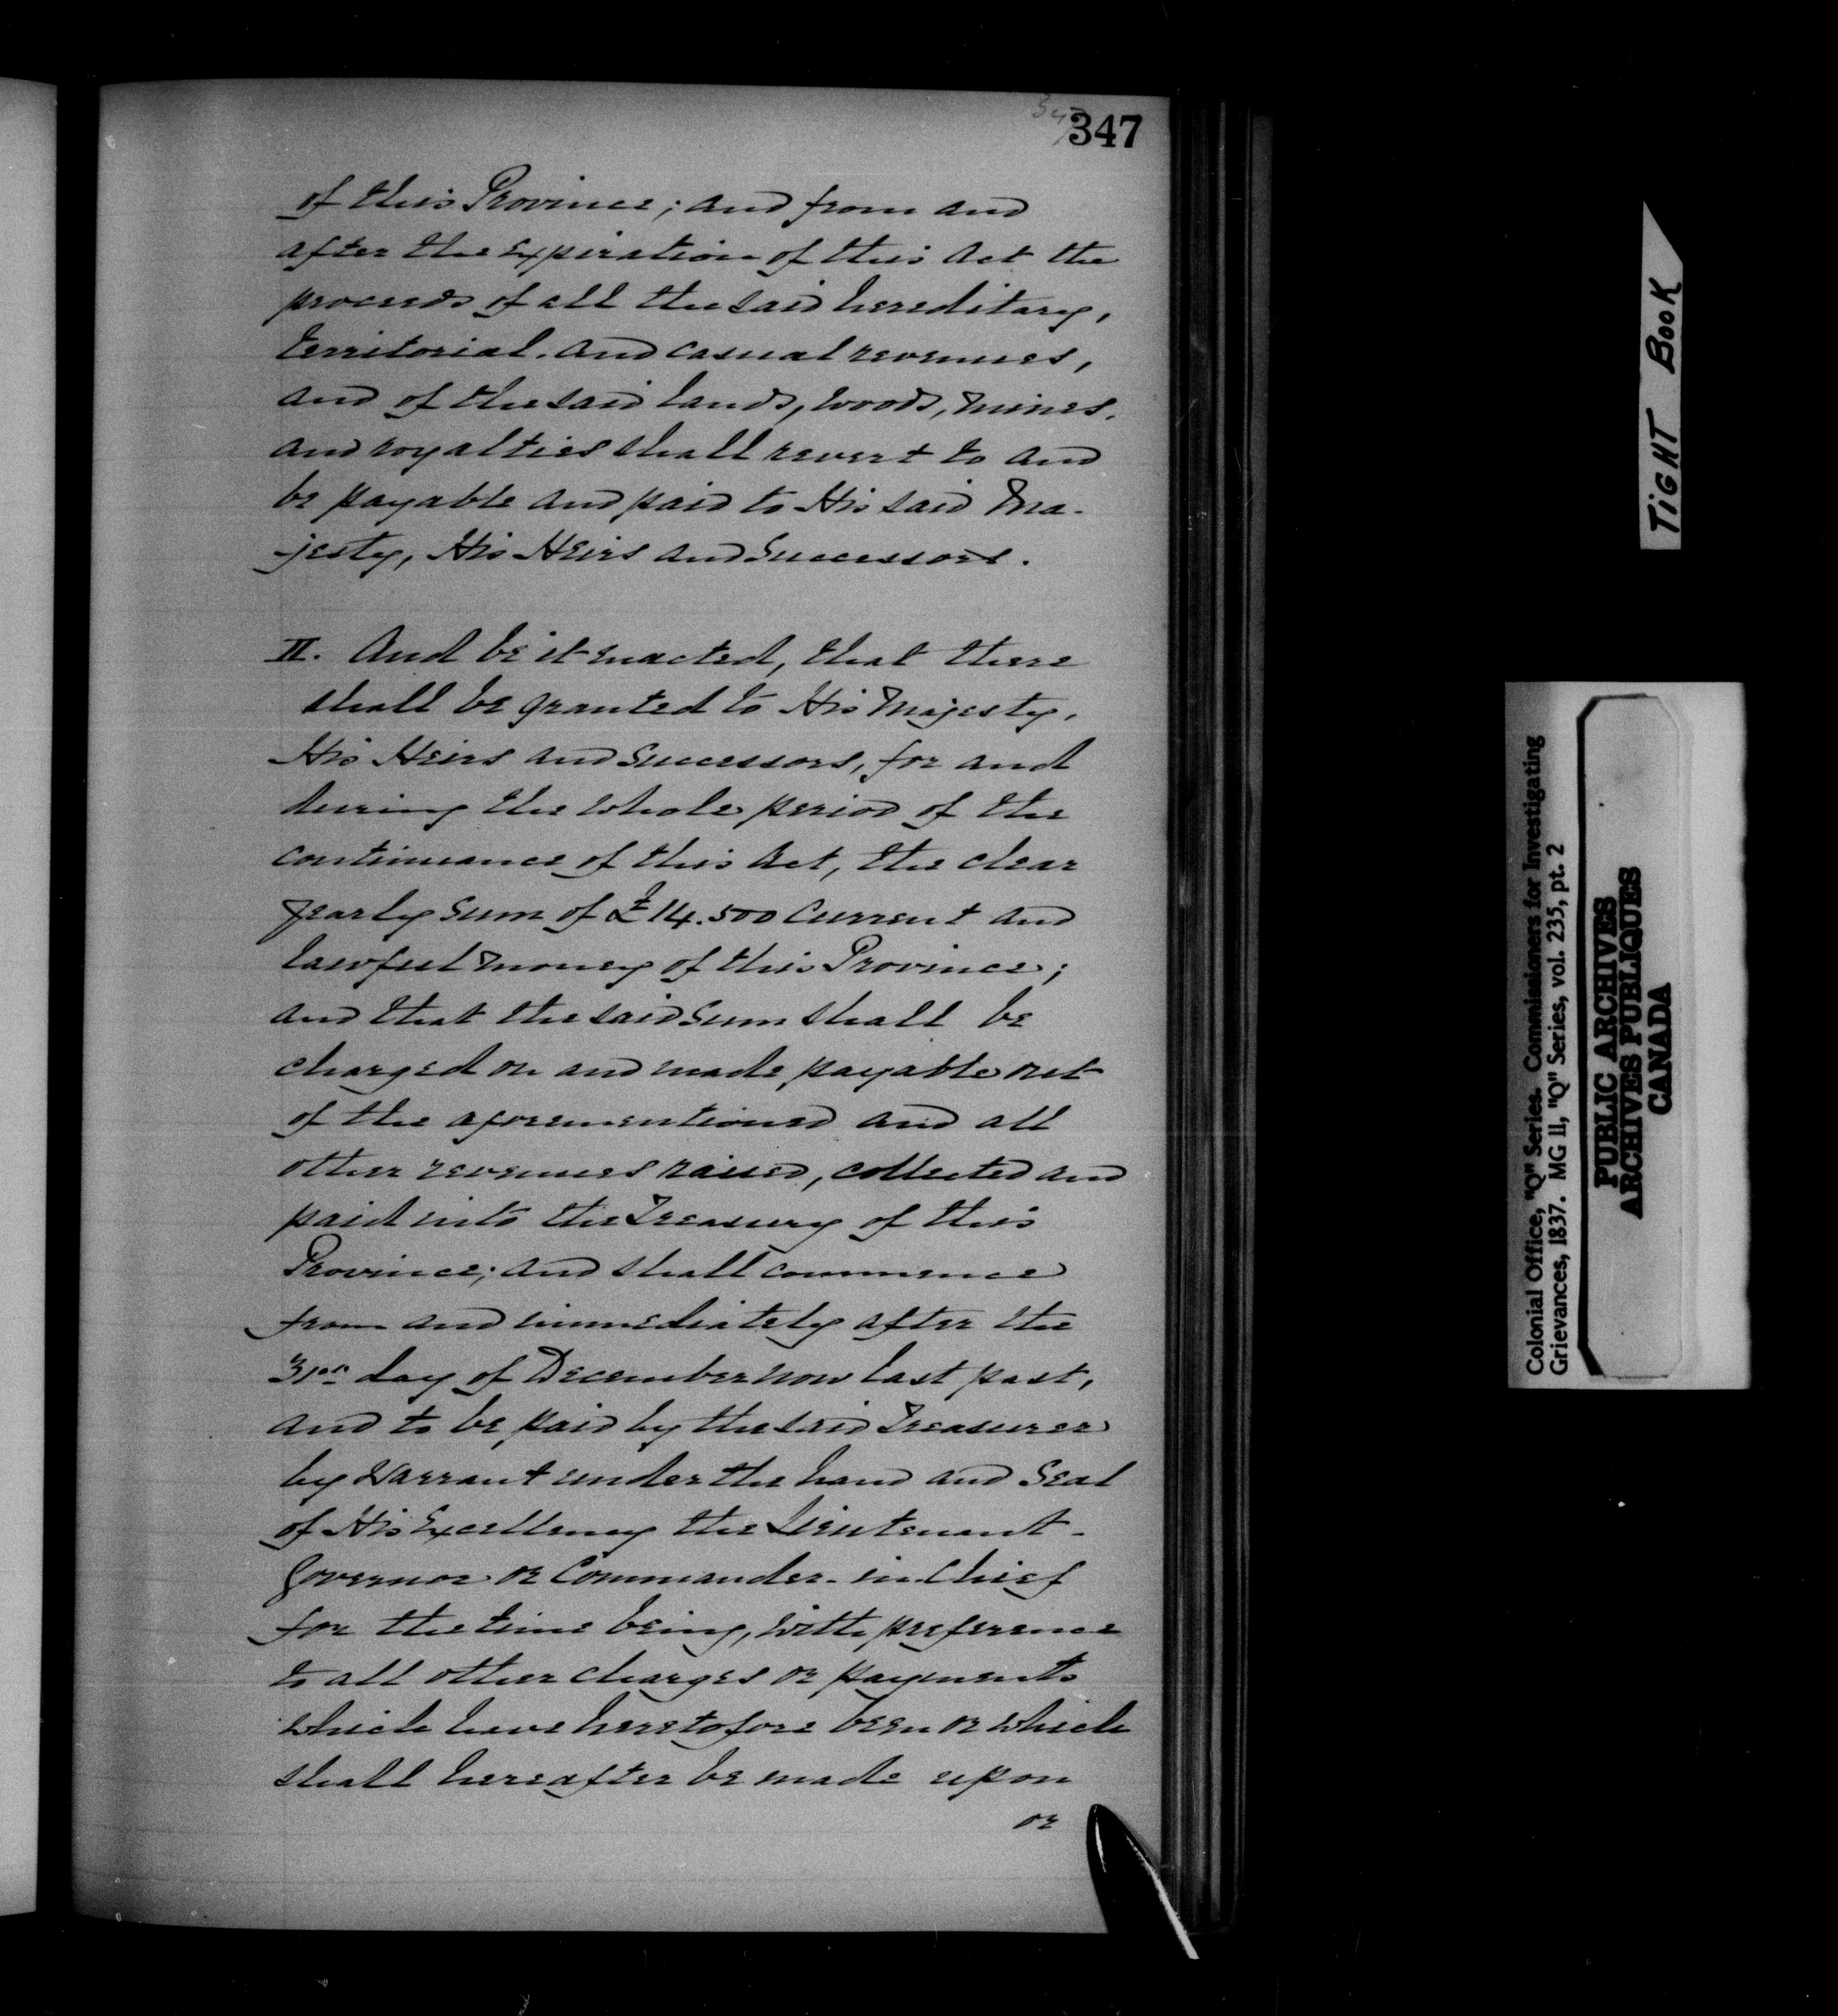 347
347
of this Province; and from and
after the expiration of this Act the
proceeds of all the said hereditary,
territorial, and casual revenues,
and of the said lands, woods, mines,
and royalties shall revert to and
be payable and paid to His said Ma-
-jesty, His Heirs and Successors.
II. And be it enacted, that there
shall be granted to His Majesty,
His Heirs and Successors, for and
during the whole period of the
continuance of this Act, the clear
yearly sum of £14.500 current and
lawful money of this Province;
and that the said sum shall be
charged on and made payable out
of the aforementioned and all
other revenues raised, collected and
paid into the Treasury of this
Province; and shall commence
from and immediately after the
31st day of December now last past,
and to be paid by the said Treasurer
by Warrant under the hand and seal
of His Excellency the Lieutenant-
Governor or Commander-in-Chief
for the time being, with preference
to all other charges or payments
which have heretofore been or which
shall hereafter be made upon
or
TIGHT BOOK
Colonial Office, "Q" Series. Commissioners for Investigating
Grievances, 1837. MG 11, "Q" Series, vol. 235, pt. 2
PUBLIC ARCHIVES
ARCHIVES PUBLIQUES
CANADA